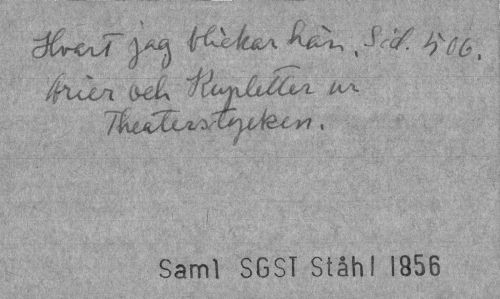 Hvart jag blickar hän. Sid. 506.
Arier och Kupletter ur
Theaterstycken.
Saml SGST Ståhl 1856